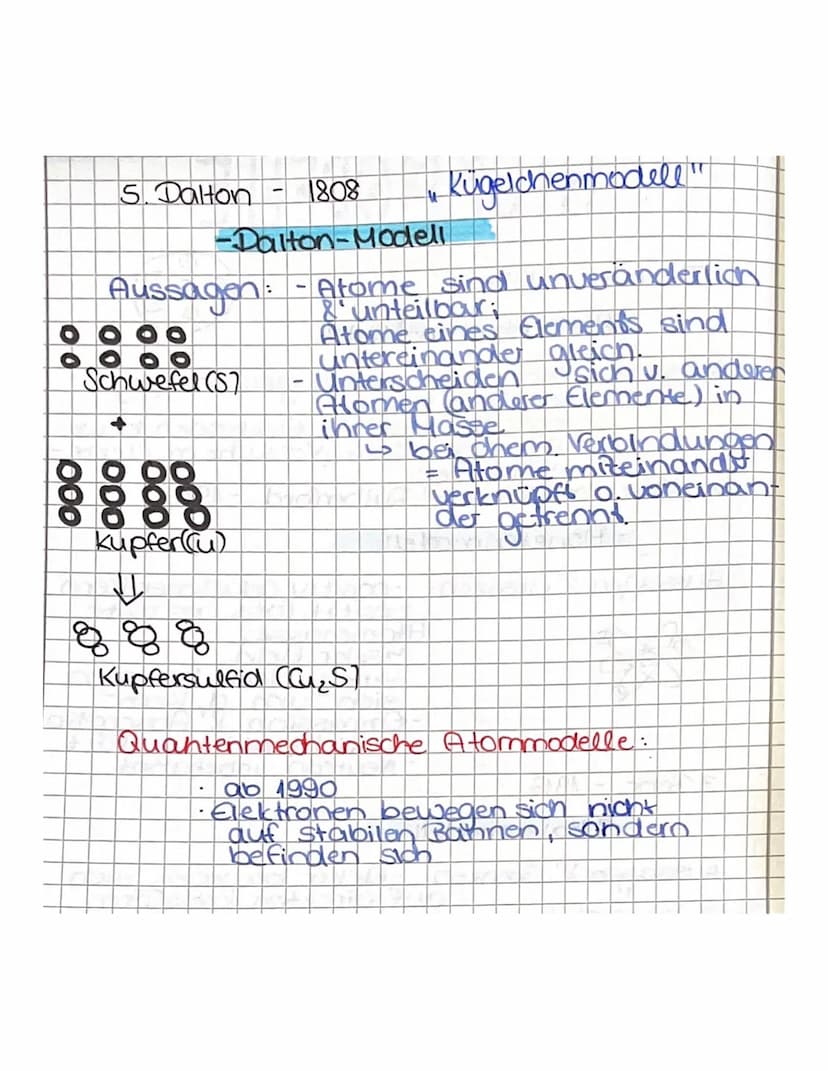 5. Dalton - 1808 „Kügelchenmodell"
-Dalton-Modell
Aussagen: - Atome sind unveränderlich
& unteilbar;
Atome eines Elements sind
untereinander gleich.
Schwefel (S)
- Unterscheiden sich v. anderen
Atomen (anderer Elemente) in
+
ihrer Masse
↳ bei chem. Verbindungen
= Atome miteinander
verknüpft o. voneinan-
der getrennt.
Kupfer (Cu)
⇓
Kupfersulfid (Cu₂S)
Quantenmechanische Atommodelle:
· ab 1990
· Elektronen bewegen sich nicht
auf stabilen Bahnen, sondern
befinden sich